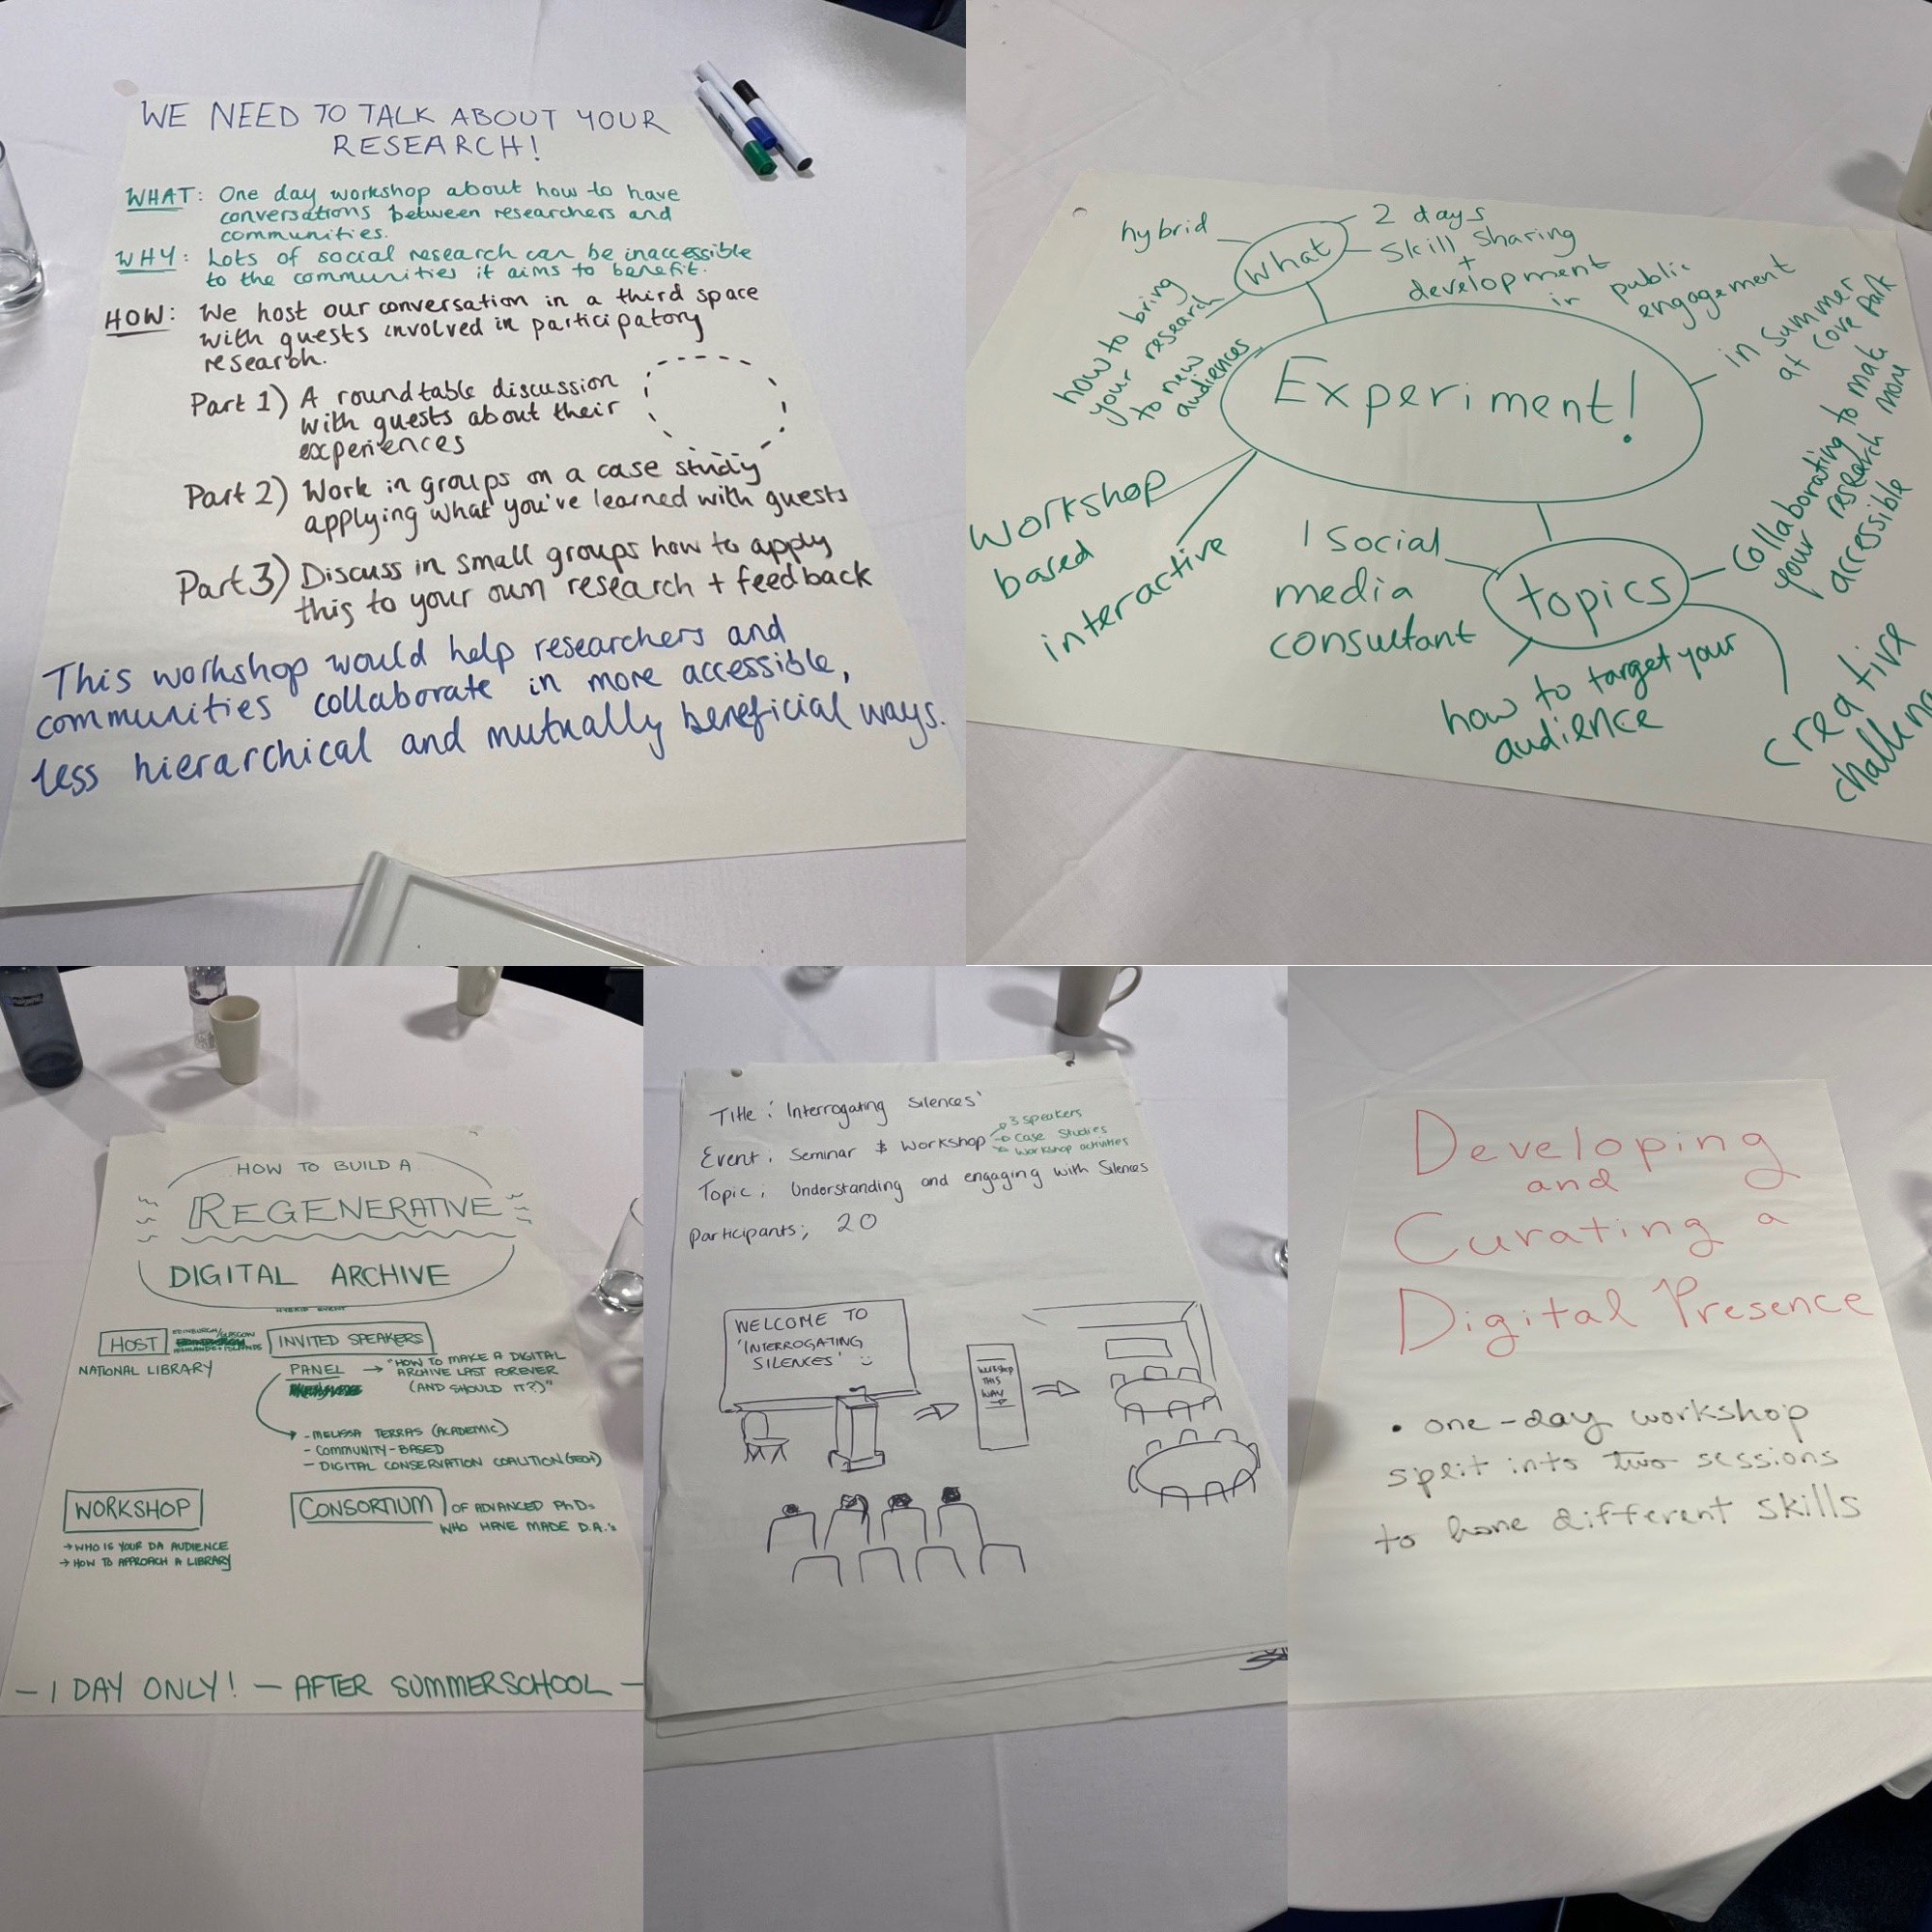 WE NEED TO TALK ABOUT YOUR
RESEARCH!
WHAT: One day workshop about how to have
conversations between researchers and
communities.
WHY: Lots of social research can be inaccessible
to the communities it aims to benefit.
HOW: We host our conversation in a third space
with guests involved in participatory
research.
Part 1) A roundtable discussion
with guests about their
experiences
Part 2) Work in groups on a case study
applying what you've learned with guests
Part 3) Discuss in small groups how to apply
this to your own research + feedback
This workshop would help researchers and
communities collaborate in more accessible,
less hierarchical and mutually beneficial ways.
Experiment!
what
hybrid
2 days
Skill sharing
+
development
in public
engagement
how to bring
your research
to new
audiences
in summer
at Cove Park
Workshop
based
interactive
topics
1 Social
media
consultant
how to target your
audience
collaborating to make
your research more
accessible
creative
HOW TO BUILD A
REGENERATIVE
DIGITAL ARCHIVE
HYBRID EVENT
HOST
EDINBURGH/GLASGOW
HIGHLANDS + ISLANDS
NATIONAL LIBRARY
INVITED SPEAKERS
PANEL → "HOW TO MAKE A DIGITAL
ARCHIVE LAST FOREVER
(AND SHOULD IT?)"
- MELISSA TERRAS (ACADEMIC)
- COMMUNITY-BASED
- DIGITAL CONSERVATION COALITION (TECH)
WORKSHOP
→ WHO IS YOUR DA AUDIENCE
→ HOW TO APPROACH A LIBRARY
CONSORTIUM OF ADVANCED PhDs
WHO HAVE MADE D.A.'s
- 1 DAY ONLY! - AFTER SUMMERSCHOOL -
Title: 'Interrogating Silences'
Event: Seminar & Workshop
3 speakers
Case Studies
Workshop activities
Topic: Understanding and engaging with Silences
Participants; 20
WELCOME TO
'INTERROGATING
SILENCES'
Workshop
THIS
WAY
Developing
and
Curating a
Digital Presence
• one-day workshop
split into two sessions
to hone different skills